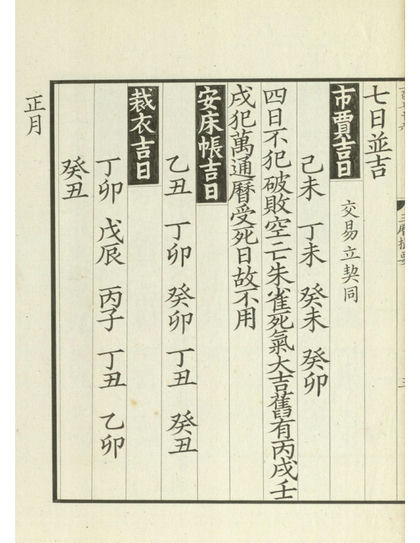 七日並吉
市賈吉日 交易立契同
己未 丁未 癸未 癸卯
四日不犯破敗空亡朱雀死氣大吉舊有丙戌壬
戌犯萬通曆受死日故不用
安床帳吉日
乙丑 丁卯 癸卯 丁丑 癸丑
裁衣吉日
丁卯 戊辰 丙子 丁丑 乙卯
癸丑
正月